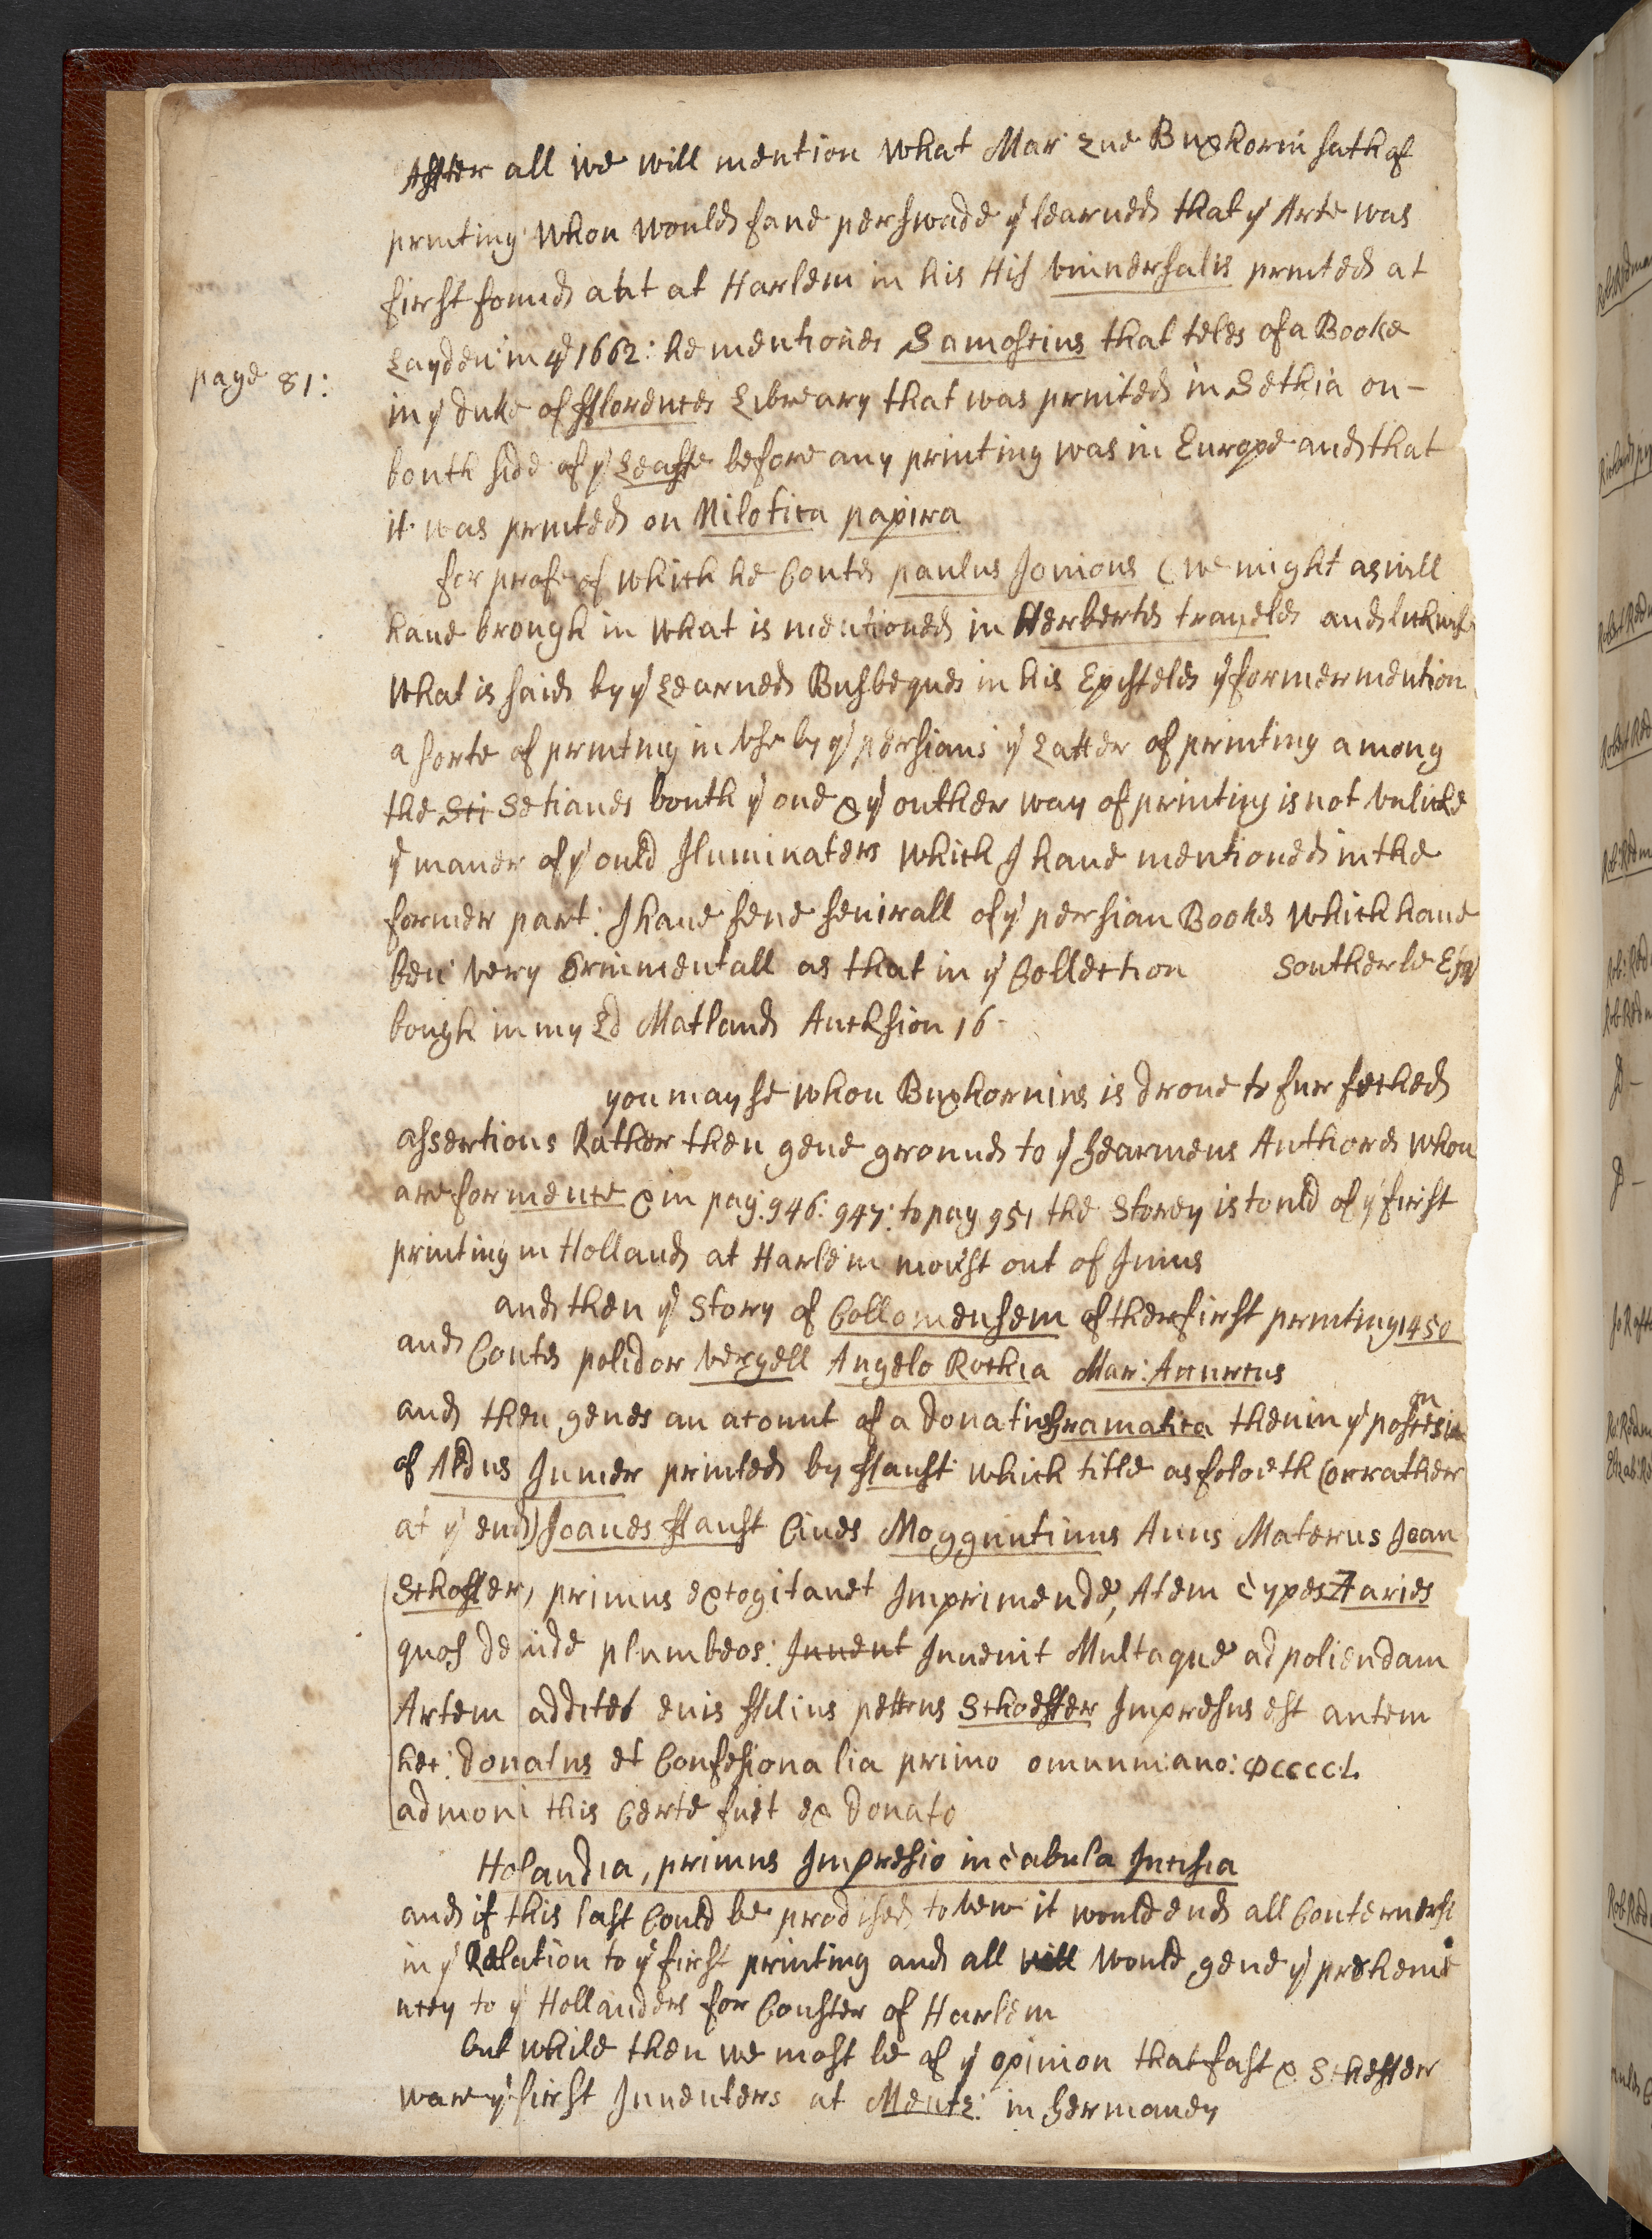 Affter all we will mention what Mar Zue Buxhorni sath of
printing whou would fane perswade yͤ learned that yͤ Arte was
first found aut at Harlem in his His Vniuersalis printed at
Layden in yͤ 1662: he mentiones Samoscius that teles of a Booke
page 81:
in yͤ duke of fflorences Libreary that was printed in Sethia on-
bouth side of yͤ Leaffe before any printing was in Europe and that
it was printed on Nilotica papira
for profe of which he Coutes paulus Jouious (we might as well
haue brough in what is mentioned in Herbertes traueles and lickwise
what is said by yͤ Learned Busbeques in his Episteles yͤ former mention
a sorte of printing in vse by yͤ persians yͤ Latter of printing among
the Sci Setianes bouth yͤ one & yͤ outher way of printing is not vnlicke
yͤ maner of yͤ ould Jluminaters which J haue mentioned in the
former part: J haue sene seuirall of yͤ persian Bookes which haue
ben very Orinmentall as that in yͤ Collection Southerle Esqͬ
bough in my Ld Matland Auckhsion 16-
you may se whou Buxhornius is droue to fur feched
assertions Rather then geue ground to yͤ Jearmens Authores whou
are for mence & in pag: 946: 947: to pag 951 the Storey is tould of yͤ first
printing in Holland at Harlem moust out of Junus
and then yͤ Story of Collomensem of ther first printing 1450
and Coutes polidor Vergell Angelo Rochia Mar: Accurcus
and then geues an acount of a donatus Gramatica then in yͤ postesion
of Aldus Juner printed by ffaust which title as foloeth (or rather
at yͤ end) Joanes ffaust Ciues Mogguntinus Auus Maternus Joan
Schoffer, primus excogitauet Jmprimende, Atem types Aaries
quos deinde plumbeos: Juuent Juuenit Multaque ad poliendam
Artem addites euis ffilius pettrus Schoeffer Jmpresus est autem
hec: donatus et Confesionalia primo omunmi ano: ↀccccL
admoni this Certe fuet ex donato
Holandia, primus Jmpresio in tabula Jncisia
and if this last Could be prodised to vew it would end all Conternersi
in yͤ Relation to yͤ first printing and all will would geue yͤ prehemi
ncey to yͤ Hollanders for Couster of Harlem
but while then we most be of yͤ opinion that fast & Scheffer
ware yͤ first Jnuenters at Mentz: in Germaney